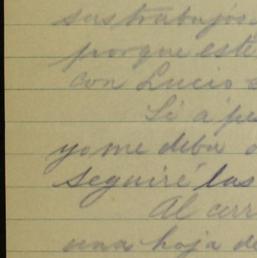 sus trabajos
porque esté
con Lucio
Si á pe
yo me deba
seguiré las
Al cerr
una hoja de